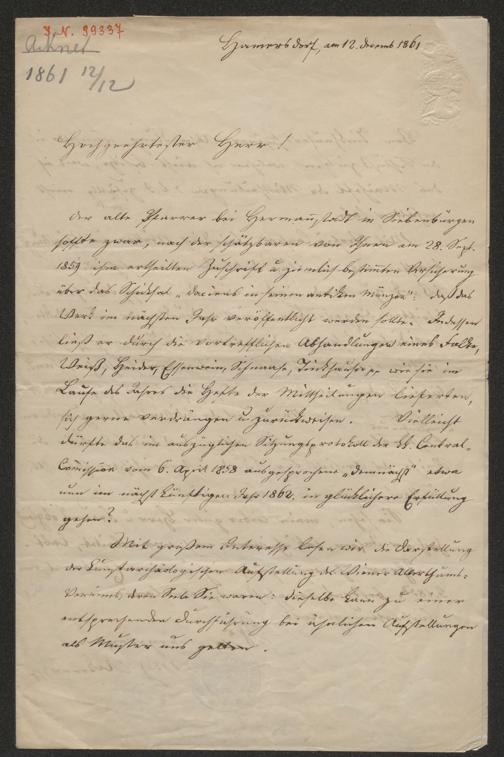 I. N. 99337
Ackner
1861 12/12
Hamersdorf, am 12. decemb 1861
Hochgeehrtester Herr!
Der alte Pfarrer bei Hermannstadt in Siebenbürgen
hoffte zwar, nach der schätzbaren von Ihnen am 28. Sept.
1859 ihm ertheilten Zuschrift u. ziemlich bestimmten Versicherung
über das Schicksal „Daciens in seinen antiken Münzen": daß das
Werk im nächsten Jahr veröffentlicht werden sollte. Indessen
ließ er durch die vortrefflichen Abhandlungen eines Falke,
Weiß, Heider, Essenwein, Schnaase, wie sie im
Laufe des Jahres die Hefte der Mittheilungen lieferten,
sich gerne verdrängen u. zurückweisen. Vielleicht
dürfte das im auszüglichen Sitzungsprotokoll der kk. Central-
Comission vom 6. April 1858 ausgesprochene „demnächst" etwa
nun im nächst künftigen Jahr 1862, in glücklichere Erfüllung
gehen?
Mit großem Interesse lasen wir die Darstellung
der kunstarchäologischen Ausstellung des Wiener Alterthums-
Vereines, deren Seele Sie waren: dieselbe kann zu einer
entsprechenden Durchführung bei ähnlichen Ausstellungen
als Muster uns gelten.